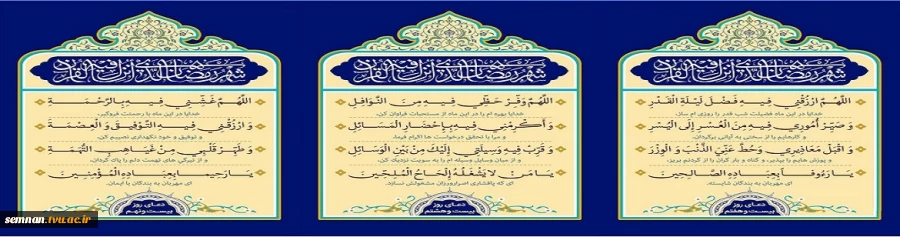 شهر رمضان الذی انزل فیه القرآن
اللّهُمَّ ارْزُقْنِي فِيهِ فَضْلَ لَيْلَةِ الْقَدْرِ
خدایا در این ماه فضیلت شب قدر را روزی ام ساز،
وَ صَيِّرْ أُمُورِي فِيهِ مِنَ الْعُسْرِ إِلَى الْيُسْرِ
و کارهایم را از سختی به آسانی برگردان،
وَ اقْبَلْ مَعَاذِيرِي وَ حُطَّ عَنِّيَ الذَّنْبَ وَ الْوِزْرَ
و پوزش هایم را بپذیر، و گناه و بار گران را از گرده‌ام بریز،
يَا رَءُوفاً بِعِبَادِهِ الصَّالِحِينَ
ای مهربان به بندگان شایسته.
دعای روز
بیست و هفتم
شهر رمضان الذی انزل فیه القرآن
اللّهُمَّ وَفِّرْ حَظِّي فِيهِ مِنَ النَّوَافِلِ
خدایا بهره ام را در این ماه از مستحبات فراوان کن،
وَ أَكْرِمْنِي فِيهِ بِإِحْضَارِ الْمَسَائِلِ
و مرا با تحقق درخواست ها اکرام فرما،
وَ قَرِّبْ فِيهِ وَسِيلَتِي إِلَيْكَ مِنْ بَيْنِ الْوَسَائِلِ
و از میان وسایل وسیله ام را به سویت نزدیک کن،
يَا مَنْ لا يَشْغَلُهُ إِلْحَاحُ الْمُلِحِّينَ
ای که پافشاری اصرارورزان مشغولش نسازد.
دعای روز
بیست و هشتم
شهر رمضان الذی انزل فیه القرآن
اللّهُمَّ غَشِّنِي فِيهِ بِالرَّحْمَةِ
خدایا در این ماه با رحمتت فروگیر،
وَ ارْزُقْنِي فِيهِ التَّوْفِيقَ وَ الْعِصْمَةَ
و توفیق و خود نگهداری نصیبم کن
وَ طَهِّرْ قَلْبِي مِنْ غَيَاهِبِ التُّهَمَةِ
و از تیرگی های تهمت دلم را پاک گردان،
يَا رَحِيماً بِعِبَادِهِ الْمُؤْمِنِينَ
ای مهربان به بندگان با ایمان.
دعای روز
بیست و نهم
semnan.tvu.ac.ir